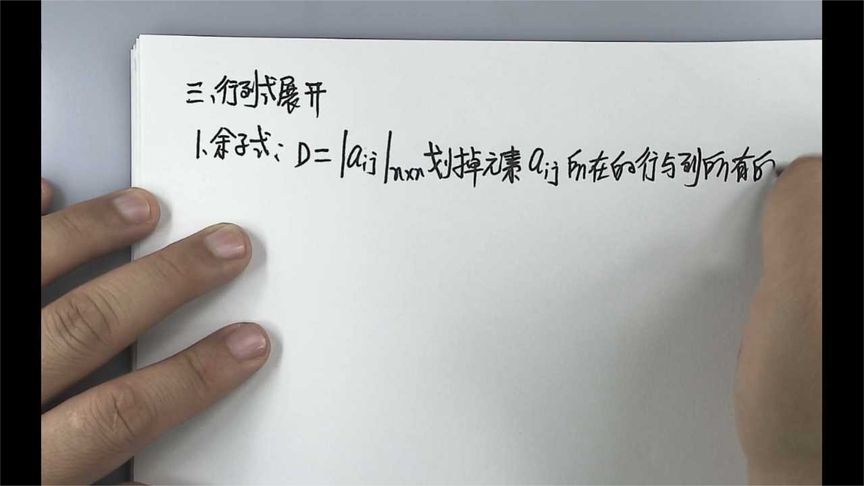 三、行列式展开
1、余子式: D=|aij|n×n 划掉元素 aij 所在的行与列所有的